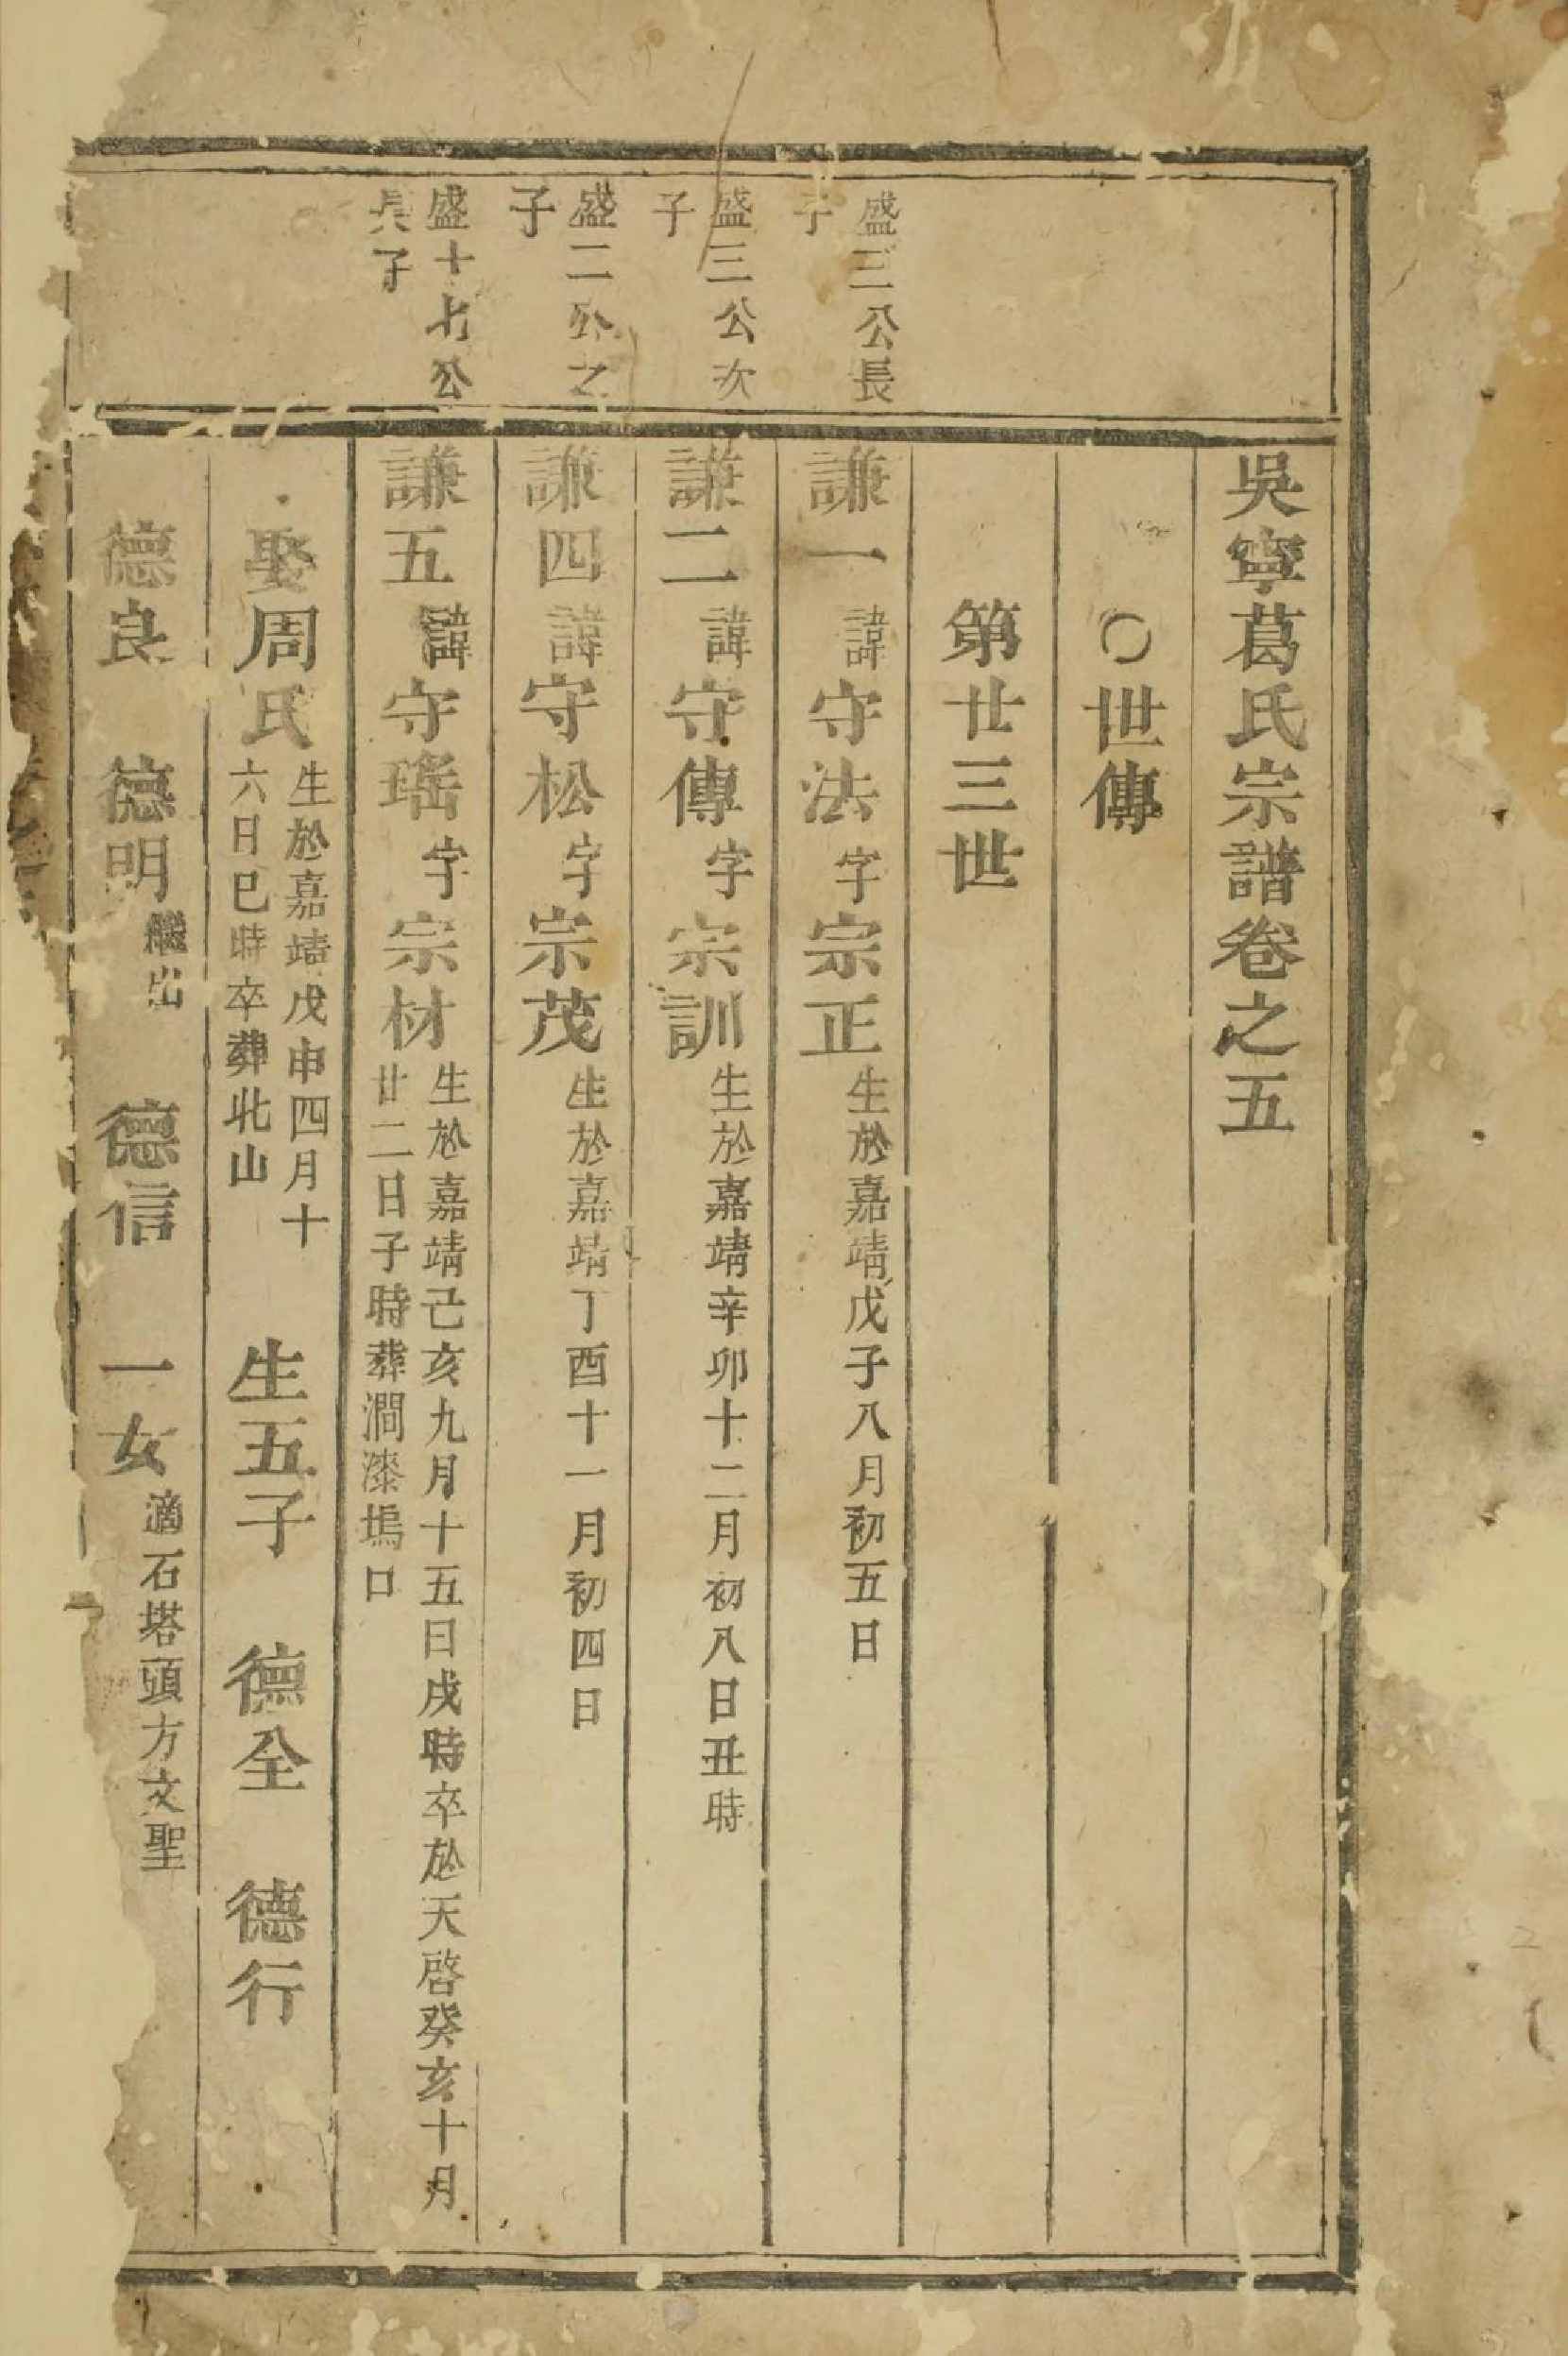 吳寧葛氏宗譜卷之五
〇世傳
第廿三世
盛三公長
子
謙一諱守法字宗正生於嘉靖戊子八月初五日
盛三公次
子
謙二諱守傳字宗訓生於嘉靖辛卯十二月初八日丑時
盛二公之
子
謙四諱守松字宗茂生於嘉靖丁酉十一月初四日
盛十七公
長子
謙五諱守瑤字宗材生於嘉靖己亥九月十五日戌時卒於天啓癸亥十月
廿二日子時葬澗漆塢口
娶周氏生於嘉靖戊申四月十
六日巳時卒葬北山
生五子 德全 德行
德良 德明繼出 德信 一女適石塔頭方文聖